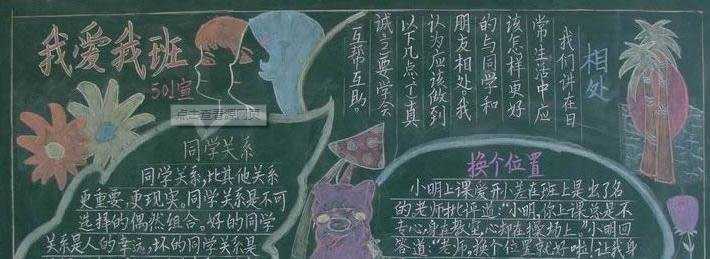 我爱我班
501宣
点击查看源网页
同学关系
同学关系,比其他关系
更重要、更现实。同学关系是不可
选择的偶然组合。好的同学
关系是人的幸运,坏的同学关系是
相处
我们讲在日
常生活中应
该怎样更好
的与同学和
朋友相处?我
认为应该做到
以下几点:①真
诚②要学会
互帮互助。
换个位置
小明上课爱开小差在班上是出了名
的。老师批评道:“小明,你上课总是不
专心,身在教室,心却在操场上。”小明回
答道:“老师,换个位置就好啦!让我身